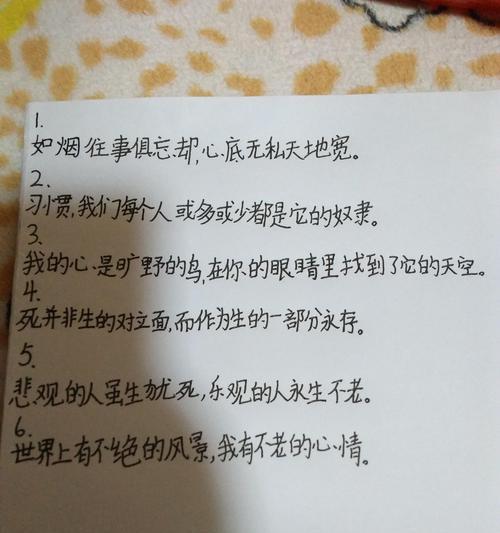 1.
如烟往事俱忘却,心底无私天地宽。
2.
习惯,我们每个人或多或少都是它的奴隶。
3.
我的心是旷野的鸟,在你的眼睛里找到了它的天空。
4.
死并非生的对立面,而作为生的一部分永存。
5.
悲观的人虽生犹死,乐观的人永生不老。
6.
世界上有不绝的风景,我有不老的心情。